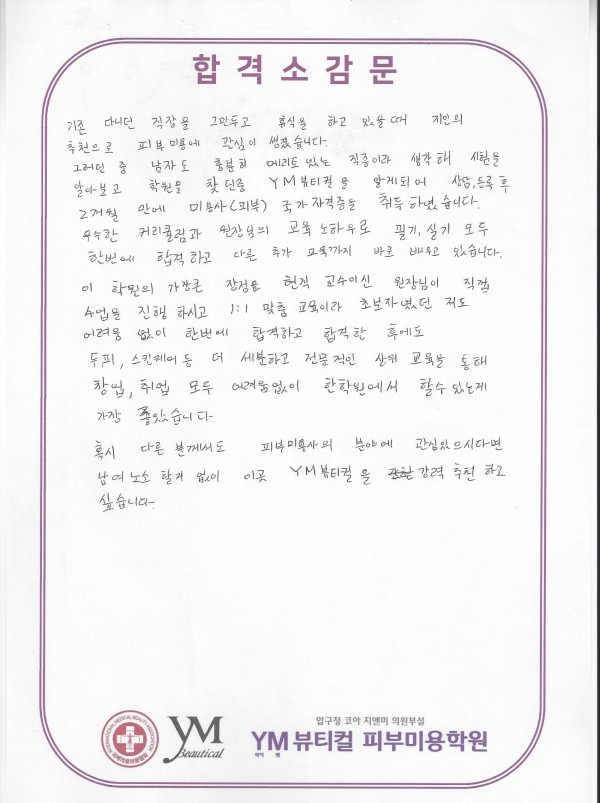 합격소감문
기존 다니던 직장을 그만두고 휴식을 하고 있을 때 지인의
추천으로 피부미용에 관심이 생겼습니다.
그러던 중 남자도 충분히 메리트 있는 직종이라 생각해 시험을
알아보고 학원을 찾던중 YM뷰티컬을 알게되어 상담, 등록 후
2개월 만에 미용사(피부) 국가자격증을 취득하였습니다.
우수한 커리큘럼과 원장님의 교육 노하우로 필기, 실기 모두
한번에 합격하고 다른 추가 교육까지 바로 배우고 있습니다.
이 학원의 가장큰 장점은 현직 교수이신 원장님이 직접
수업을 진행 하시고 1:1 맞춤 교육이라 초보자였던 저도
어려움 없이 한번에 합격하고 합격한 후에도
두피, 스킨케어 등 더 세분하고 전문적인 상위 교육을 통해
창업, 취업 모두 어려움없이 한학원에서 할수 있는게
가장 좋았습니다.
혹시 다른 분께서도 피부미용사의 분야에 관심있으시다면
남여노소 할거 없이 이곳 YM뷰티컬을 강력 추천 하고
싶습니다.
INTERNATIONAL MEDICAL BEAUTY ASSOCIATION
국제의료미용협회
YM
Beautical
압구정 코아 지앤미 의원부설
YM뷰티컬 피부미용학원
와이 엠